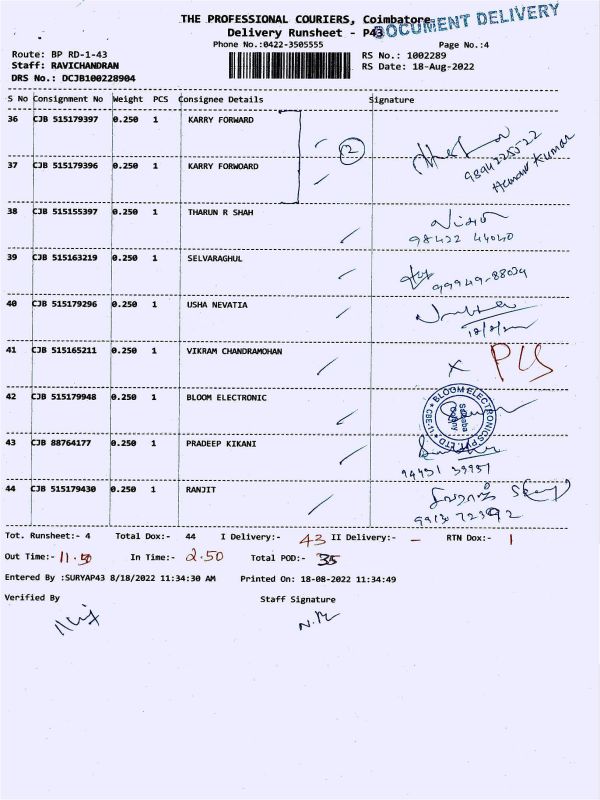 THE PROFESSIONAL COURIERS, Coimbatore
DOCUMENT DELIVERY
Delivery Runsheet - P43
Phone No.:0422-3505555
Page No.:4
Route: BP RD-1-43
RS No.: 1002289
Staff: RAVICHANDRAN
RS Date: 18-Aug-2022
DRS No.: DCJB100228904
S No Consignment No Weight PCS Consignee Details Signature
36 CJB 515179397 0.250 1 KARRY FORWARD
2
9894225522
Hemant Kumar
37 CJB 515179396 0.250 1 KARRY FORWOARD
38 CJB 515155397 0.250 1 THARUN R SHAH
98422 44040
39 CJB 515163219 0.250 1 SELVARAGHUL
99949-88024
40 CJB 515179296 0.250 1 USHA NEVATIA
41 CJB 515165211 0.250 1 VIKRAM CHANDRAMOHAN
X PLS
42 CJB 515179948 0.250 1 BLOOM ELECTRONIC
BLOOM ELECTRONICS PVT. LTD
CBE-11
43 CJB 88764177 0.250 1 PRADEEP KIKANI
94431 39937
44 CJB 515179430 0.250 1 RANJIT
Tot. Runsheet:- 4 Total Dox:- 44 I Delivery:- 43 II Delivery:- - RTN Dox:- 1
Out Time:- 11.50 In Time:- 2.50 Total POD:- 35
Entered By :SURYAP43 8/18/2022 11:34:30 AM Printed On: 18-08-2022 11:34:49
Verified By Staff Signature
N.R